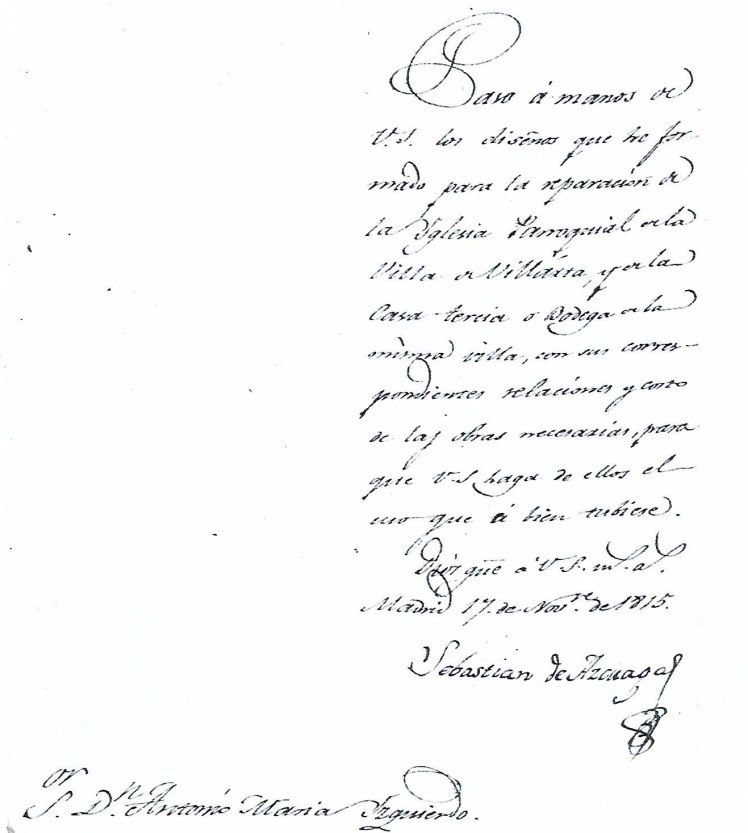 Paso á manos de
V.S. los diseños que he for-
mado para la reparación de
la Yglesia Parroquial de la
Villa de Villarta, y de la
Casa tercia o Bodega de la
misma villa, con sus corres-
pondientes relaciones y costo
de las obras necesarias, para
que V.S. haga de ellos el
uso que á bien tubiese.
Dios gue á V.S. m.s a.s
Madrid 17. de Nov.re de 1815.
Sebastian de Azcuaga
S.or D.n Antonio Maria Izquierdo.